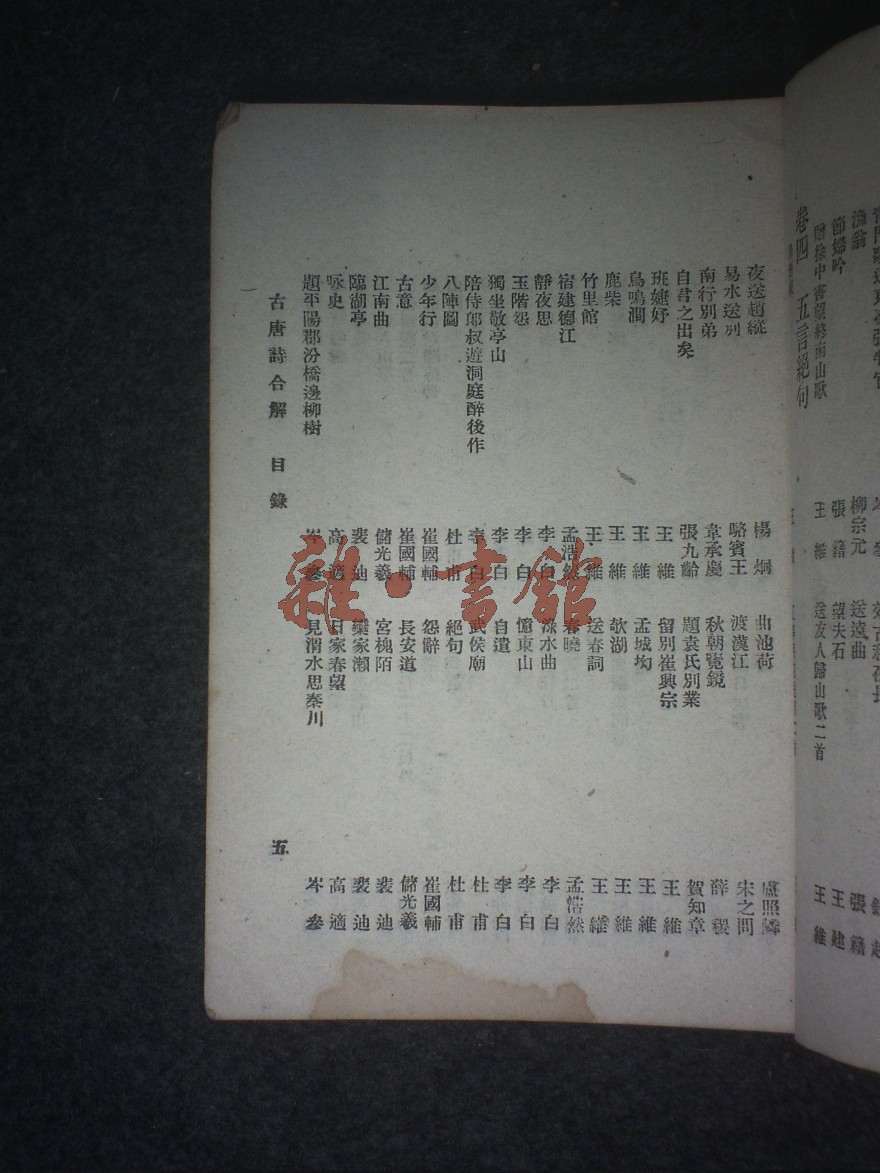 漁翁 柳宗元 送遠曲 張籍
節婦吟 張籍 望夫石 王建
贈徐中書望終南山歌 王維 送友人歸山歌二首 王維
卷四 五言絕句
夜送趙縱 楊炯 曲池荷 盧照隣
易水送別 駱賓王 渡漢江 宋之問
南行別弟 韋承慶 秋朝覽鏡 薛稷
自君之出矣 張九齡 題袁氏別業 賀知章
班婕妤 王維 留別崔興宗 王維
鳥鳴澗 王維 孟城坳 王維
鹿柴 王維 欹湖 王維
竹里館 王維 送春詞 王維
宿建德江 孟浩然 春曉 孟浩然
靜夜思 李白 淥水曲 李白
玉階怨 李白 憶東山 李白
獨坐敬亭山 李白 自遣 李白
陪侍郎叔遊洞庭醉後作 李白 武侯廟 杜甫
八陣圖 杜甫 絕句 杜甫
少年行 崔國輔 怨辭 崔國輔
古意 崔國輔 長安道 儲光羲
江南曲 儲光羲 宮槐陌 裴迪
臨湖亭 裴迪 欒家瀨 裴迪
咏史 高適 田家春望 高適
題平陽郡汾橋邊柳樹 岑參 見渭水思秦川 岑參
古唐詩合解 目錄 五
雜·書館